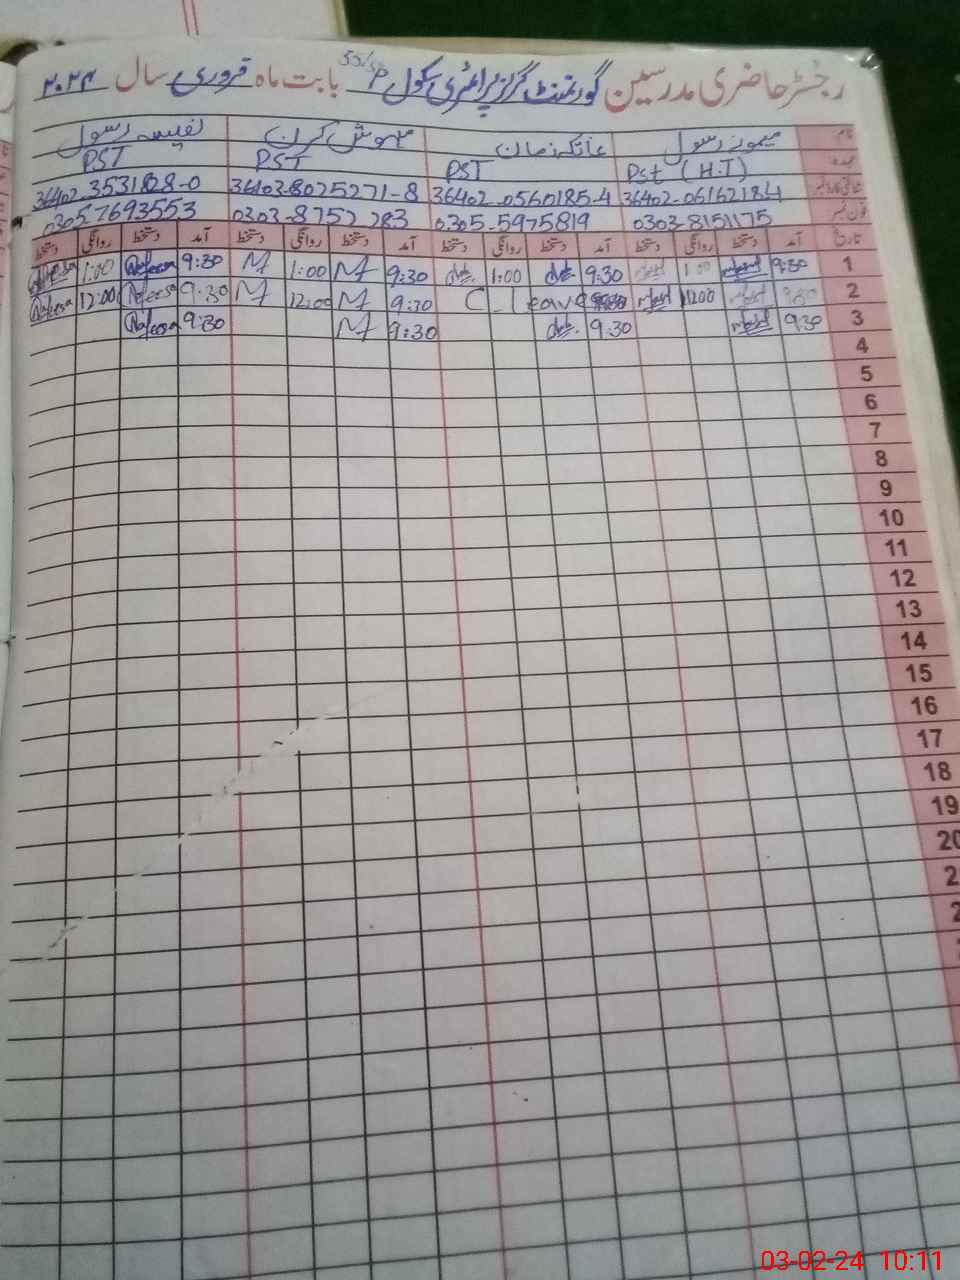 رجسٹر حاضری مدرسین گورنمنٹ گرلز پرائمری سکول 55/5P بابت ماہ فروری سال ۲۰۲۴
نام میمونہ رسول عاتکہ زمان مہوش کرن نفیسہ رسول
عہدہ Pst (H.T) PST PST PST
36402-0616218-4 36402-0560185-4 36403-8025271-8 36402-3531828-0
فون نمبر 0303-8151175 0305-5975819 0303-8752283 03057693553
تاریخ آمد دستخط روانگی دستخط آمد دستخط روانگی دستخط آمد دستخط روانگی دستخط آمد دستخط روانگی دستخط
1 9:30 1:00 9:30 1:00 9:30 M 1:00 M 9:30 Nafeesa 1:00 Nafeesa
2 9:30 12:00 C-leave 9:30 M 12:00 M 9:30 Nafeesa 12:00 Nafeesa
3 9:30 9:30 9:30 M 9:30 Nafeesa
4
5
6
7
8
9
10
11
12
13
14
15
16
17
18
19
20
2
2
03-02-24 10:11